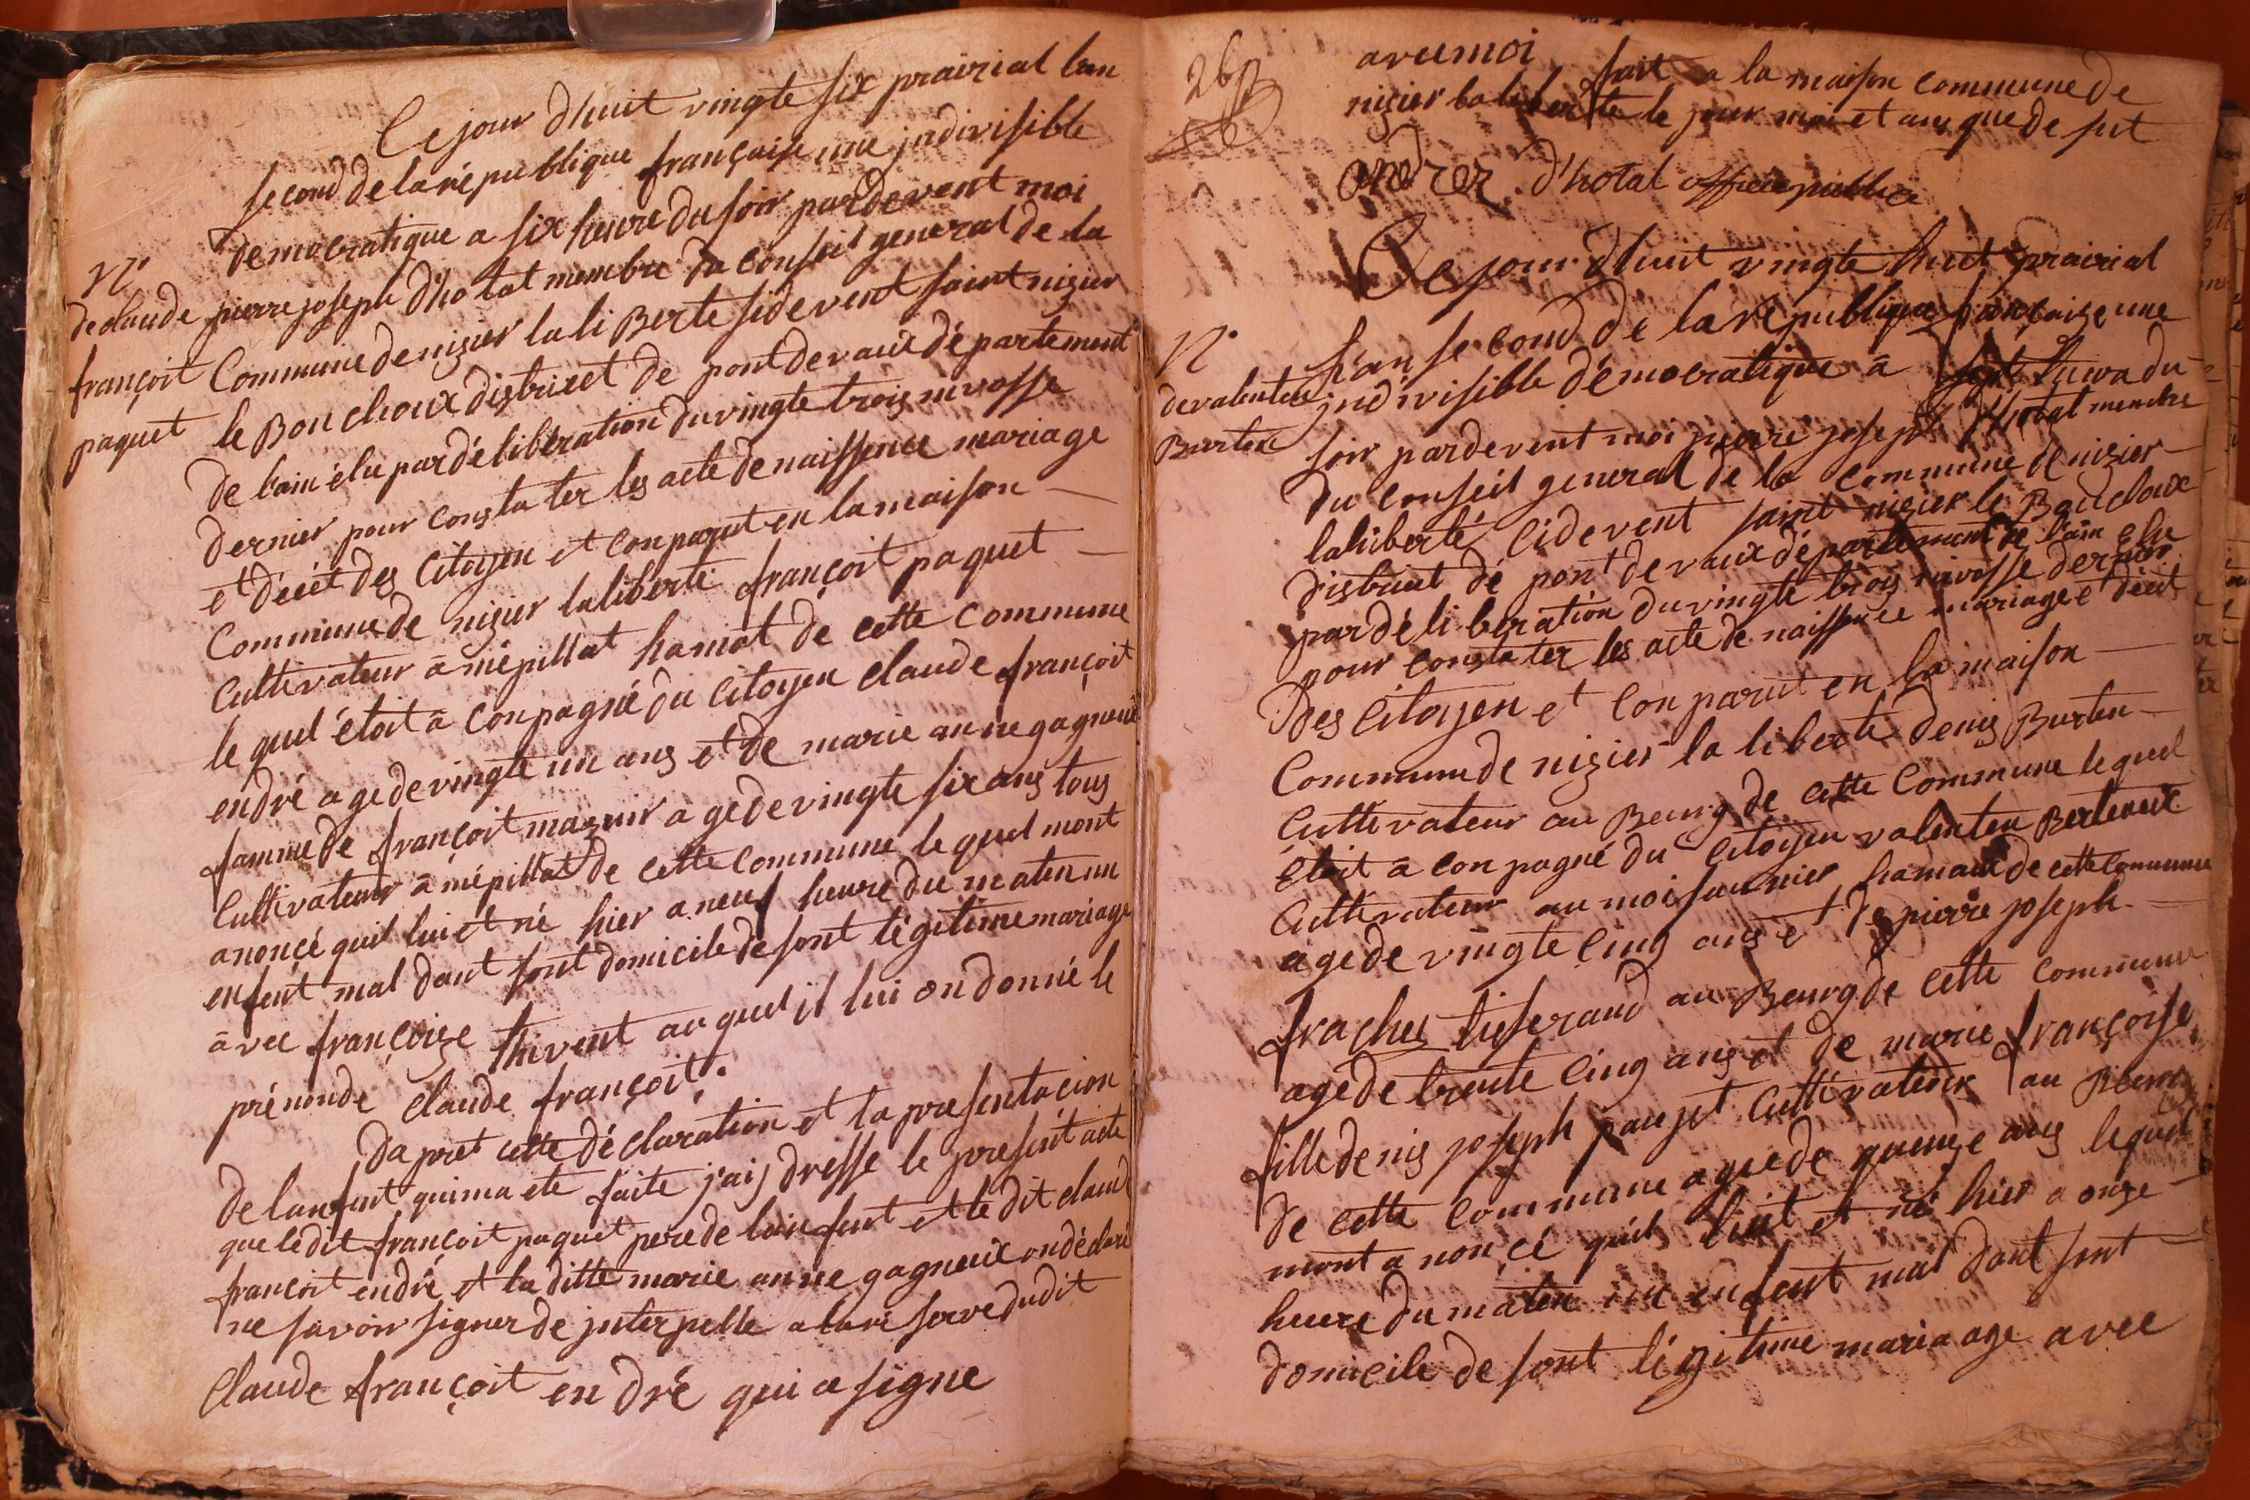 Ce jour d'huit vingte six prairial l'an
second de la république française une jndivisible
démocratique a six heure du soir pardevent moi
N.
de claude
françoit
paquet
pierre joseph d'hotat membre du conseil general de la
Commune de nizier la liBerté sidevent saint nizier
le Bouchoux distrixet de pontdevaux département
de l'ain élu par délibération du vingte trois nivosse
dernier pour constater les acte de naissence mariage
et décét des Citoyen et conparut en la maison
Commune de nizier la liberté françoit paquet
Cultivateur a mépillat hamot de cette commune
le quel étoit a conpagné du citoyen claude françoit
endré age de vingte un ans et de marie anne gagneux
famme de françoit mazuir age de vingte six ans tous
Cultivateur a mépillat de cette commune le quel mont
anoncé quil luit et né hier a neuf heure du maten un
enfent mal dant sont domicile de sont légitime mariage
avec françoize thivent auquel il lui on donné le
prénon de claude françoit.
Da pret cette déclaration et la presentacion
de lanfent quima ete faite j'aij dresse le present acte
que le dit françoit paquet pere de lainfent et le dit claud
françoit endré et la ditte marie anne gagneux on déclaré
ne savoir signer de jnterpellé a la réserve dudit
Claude françoit endré qui a signe
26
avec moi fait a la maison commune de
nizier la liberté le jour moi et ans que de sut
andrez d'hotal officie public
Ce jour d'huit vingte huit prairial
N.
de valenten
Burten
l'an second de la république française une
jndivisible démocratique a sept heure du
soir pardevent moi pierre joseph d'hotat membre
du conseil general de la commune de nizier
la liberté cidevent saint nizier le Bouchoux
distrient de pont de vaux département de l'ain élu
par délibération du vingte trois nivosse dernier
pour constater les acte de naissence mariage et décét
des Citoyen et conparut en la maison
Commune de nizier la liberté denis Burten
Cultivateur au Beurg de cette Commune le quel
étoit a conpagné du citoyen valenten Berteneux
Cultivateur au moisfournier hamaux de cette commune
age de vingte cinq ans et de pierre joseph
frachet tiserand au Beurg de cette commune
age de trente cinq ans et de marie françoise
fille denis joseph paujet cultivateur au Beurg
de cette commune aguede quenze ans lequel
mont a noncé quil luit et né hier a onze
heure du maten un enfent mal dant sont
domicile de sont légitime mariaage avec